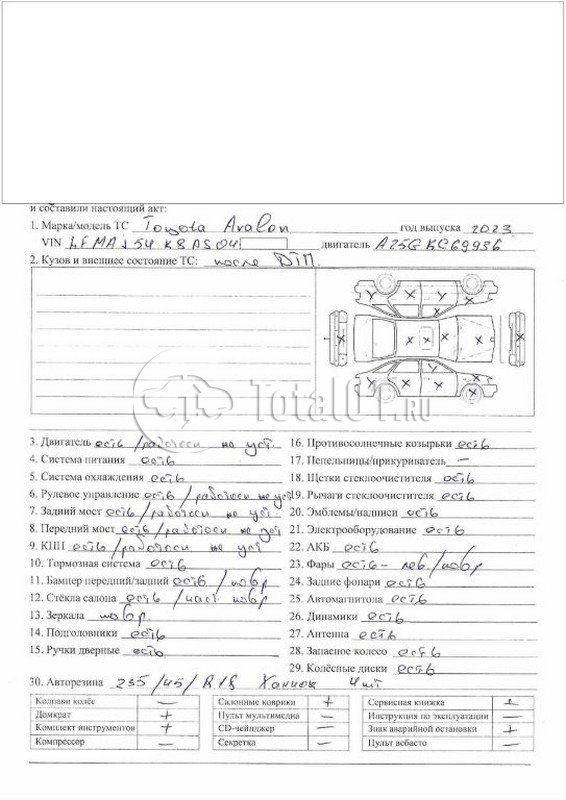 и составили настоящий акт:
1. Марка/модель ТС Toyota Avalon год выпуска 2023
VIN LFMA154K8AS04 двигатель A25GKC69936
2. Кузов и внешнее состояние ТС: после ДТП.
Total01.RU
3. Двигатель есть / работосп не уст.
4. Система питания есть
5. Система охлаждения есть
6. Рулевое управление есть / работосп не уст
7. Задний мост есть / работосп не уст.
8. Передний мост есть / работосп не уст
9. КПП есть / работосп не уст
10. Тормозная система есть
11. Бампер передний/задний есть / повр
12. Стёкла салона есть / част повр
13. Зеркала повр.
14. Подголовники есть
15. Ручки дверные есть
16. Противосолнечные козырьки есть
17. Пепельницы/прикуриватель –
18. Щетки стеклоочистителя есть
19. Рычаги стеклоочистителя есть
20. Эмблемы/надписи есть
21. Электрооборудование есть
22. АКБ есть
23. Фары есть – лев./повр
24. Задние фонари есть
25. Автомагнитола есть
26. Динамики есть
27. Антенна есть
28. Запасное колесо есть
29. Колёсные диски есть
30. Авторезина 235/45/R18 Ханкок 4шт
Колпаки колёс – Салонные коврики + Сервисная книжка +
Домкрат + Пульт мультимедиа – Инструкция по эксплуатации –
Комплект инструментов + CD-чейнджер – Знак аварийной остановки +
Компрессор – Секретка – Пульт вебасто –